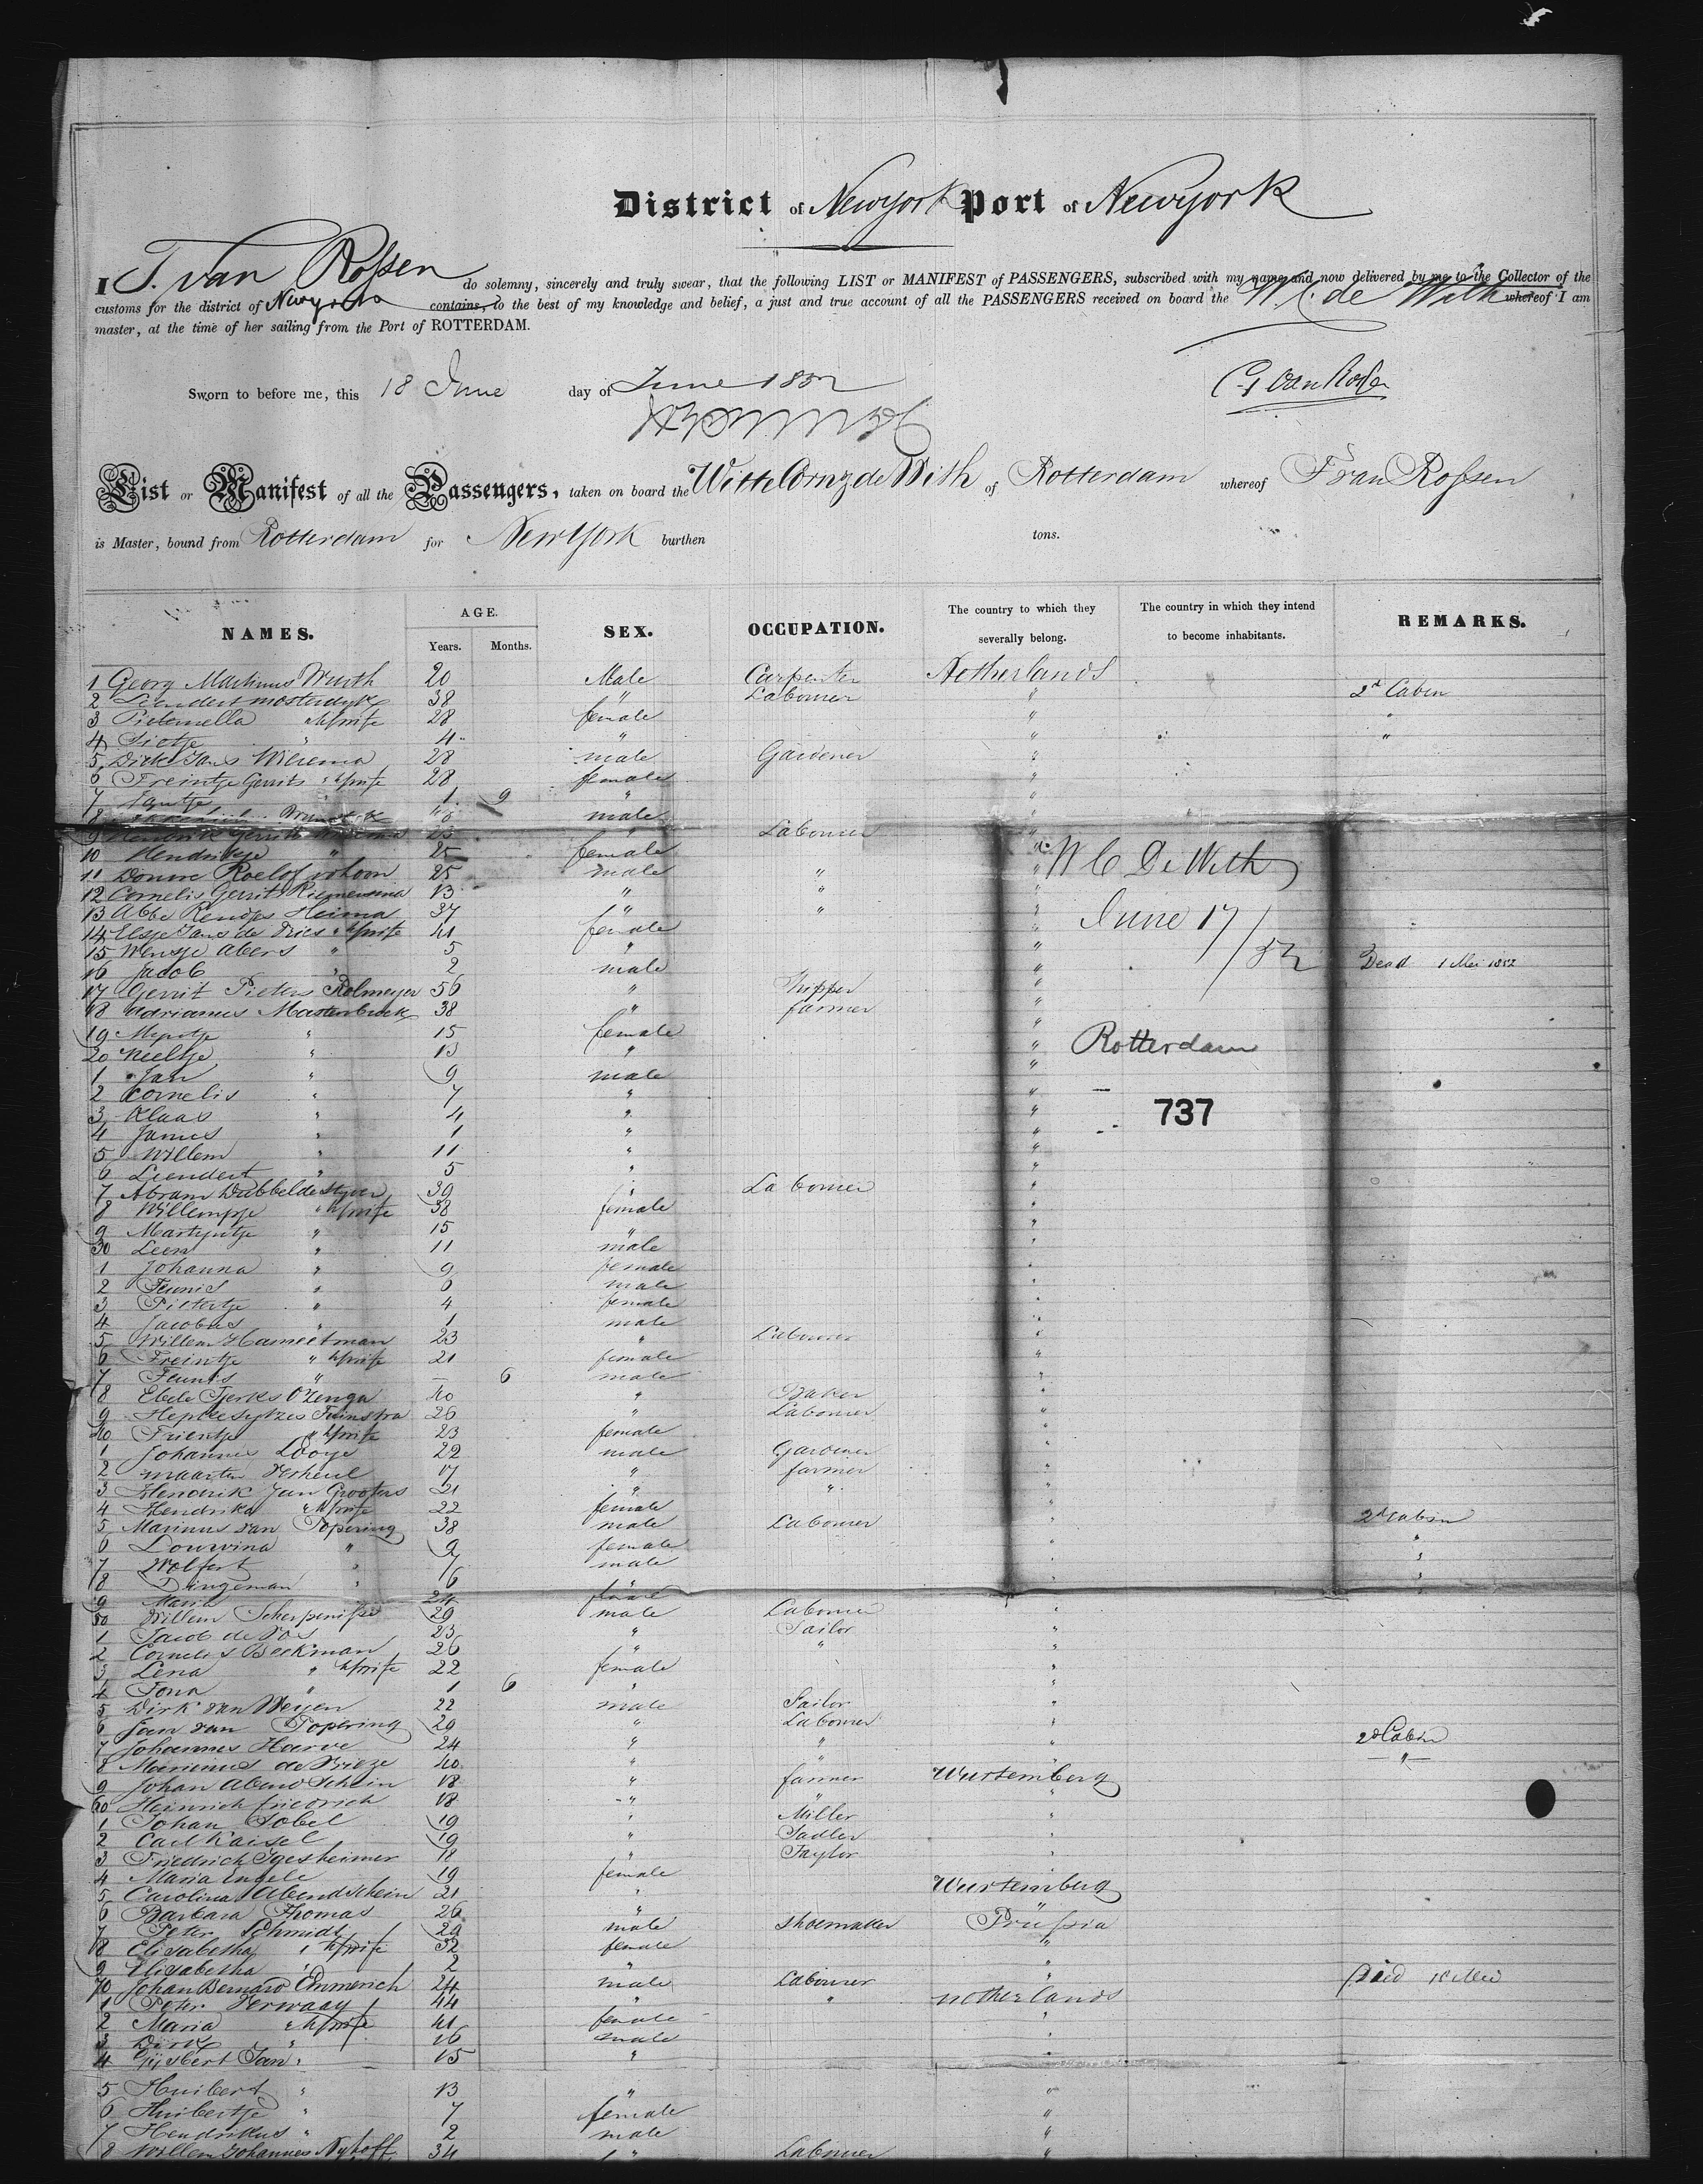 District of Newyork Port of Newyork
I T. van Rossen do solemny, sincerely and truly swear, that the following LIST or MANIFEST of PASSENGERS, subscribed with my name and now delivered by me to the Collector of the
customs for the district of Newyork contains, to the best of my knowledge and belief, a just and true account of all the PASSENGERS received on board the W. C. de With whereof I am
master, at the time of her sailing from the Port of ROTTERDAM.
Sworn to before me, this 18 June day of June 1852
List or Manifest of all the Passengers, taken on board the Witte Cornz de With of Rotterdam whereof T van Rossen
is Master, bound from Rotterdam for New York burthen tons.
NAMES. AGE. Years. Months. SEX. OCCUPATION. The country to which they severally belong. The country in which they intend to become inhabitants. REMARKS.
1 Georg Martinus Wurth 20 Male Carpenter Netherlands
2 Leendert Mosterdyk 38 " Labourer " 2d Cabin
3 Pieternella " wife 28 female " "
4 Pietje " 4 " " "
5 Dirk Jans Wierema 28 male Gardener "
6 Freintje Gerrits " wife 28 female "
7 1 9 " "
8 male "
9 Hendrik Gerrits 25 " Labourer "
10 Hendrikje " 25 female "
11 Douwe Roelofs 25 male " "
12 Cornelis Gerrits Riemersma 13 " " "
13 Abbe Reinders Heima 37 " " "
14 Elsje Jans de Vries " wife 41 female "
15 Wensje Abers " 5 " "
16 Jacob " 2 male " Dead 1 Mei 1852
17 Gerrit Pieter Rolmeyer 56 " "
18 Adrianus Mastenbroek 38 " farmer "
19 " 15 female "
20 Neeltje " 13 " "
1 Jan " 9 male "
2 Cornelis " 7 " "
3 Klaas " 4 " "
4 James " 1 " "
5 Willem " 11 " "
6 Leendert " 5 " "
7 Abram Dubbeldestyn 39 " Labourer "
8 Willempje " wife 38 female "
9 Martyntje " 15 " "
30 Leen " 11 male "
1 Johanna " 9 female "
2 Teunis " 6 male "
3 Pietertje " 4 female "
4 Jacobus " 1 male "
5 Willem Hameetman 23 " Labourer "
6 Freintje " wife 21 female "
7 Teunis " — 6 male "
8 Ebele Tjerks Ozenga 40 " Baker "
9 Hepke Sytzes Tuinstra 26 " Labourer "
40 Trientje " wife 23 female "
1 Johannes Looye 22 male Gardener "
2 maarten Verheul 17 " farmer "
3 Hendrik Jan Grooters 21 " " "
4 Hendrika " wife 22 female "
5 Marinus van Popering 38 male Labourer " 2d Cabin
6 Louwina " 9 female " "
7 Wolfert " 7 male " "
8 Dingeman " 6 " " "
9 Maria 24
50 Willem Scherpenisse 29 male Labourer "
1 Jacob de Vos 23 " Sailor "
2 Cornelis Beekman 26 " " "
3 Lena " wife 22 female "
4 Tona " 1 6 " "
5 Dirk van Weyen 22 male Sailor "
6 Jan van Popering 29 " Labourer "
7 Johannes Harve 24 " " " 2d Cabin
8 Marinus de Brieze 40 " " " "
9 Johan Abendschein 18 " farmer Wurtemberg
60 Heinrich friedrich 18 " " "
1 Johan Sobel 19 " Miller "
2 Carl Kaisel 19 " Sadler "
3 Friedrich Igesheimer 18 " Taylor "
4 Maria Engele 19 female
5 Carolina Abendschein 21 " Wurtemberg
6 Barbara Thomas 26 " "
7 Peter Schmidt 29 male Shoemaker Prussia
8 Elisabetha " wife 32 female "
9 Elisabetha " 2 " "
70 Johan Bernard Emmerich 24 male Labourer " Died
1 Peter Verwaay 44 " " netherlands
2 Maria " wife 41 female "
3 Dirk " 16 male "
4 Gysbert Jan " 15 " "
5 Huibert " 13 " "
6 Huibertje " 7 female "
7 Hendrikus " 2 male "
8 Willem Johannes Nyhoff 34 " Labourer "
W C De With
June 17/52
Rotterdam
737